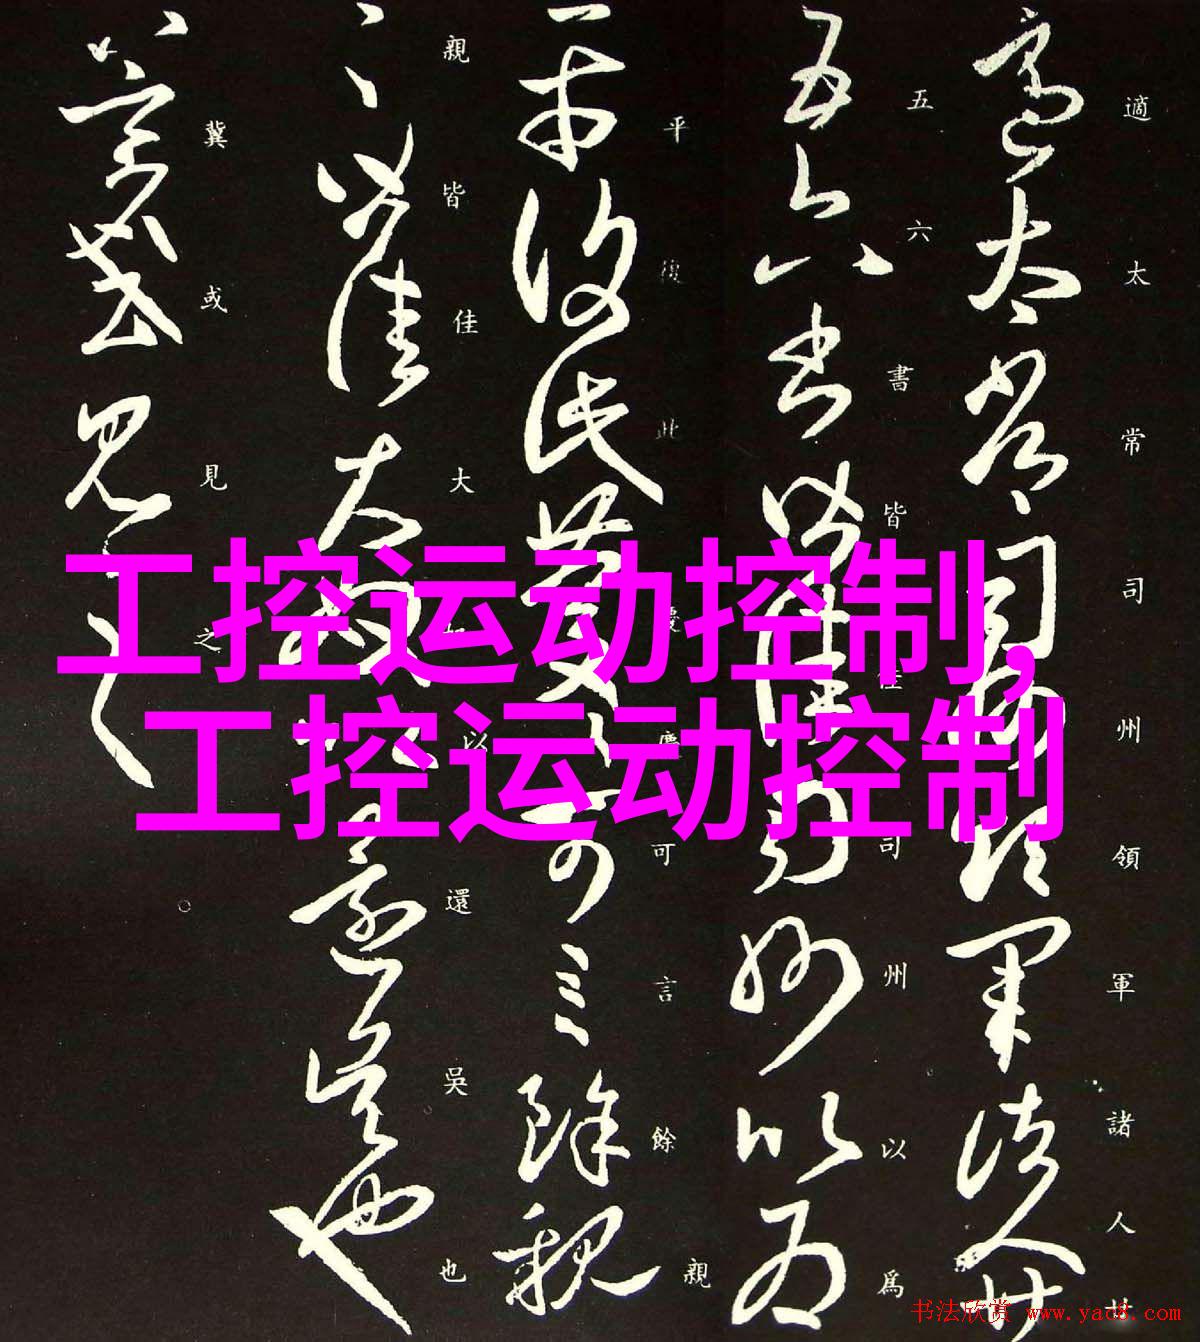 適太常司州領軍諸人廿
五六書皆佳司州以為
平復此慶慶可言餘親
親皆佳大奴以還吳也
冀或見之
工控运动控制,
工控运动控制
书法欣赏 www.yac8.com